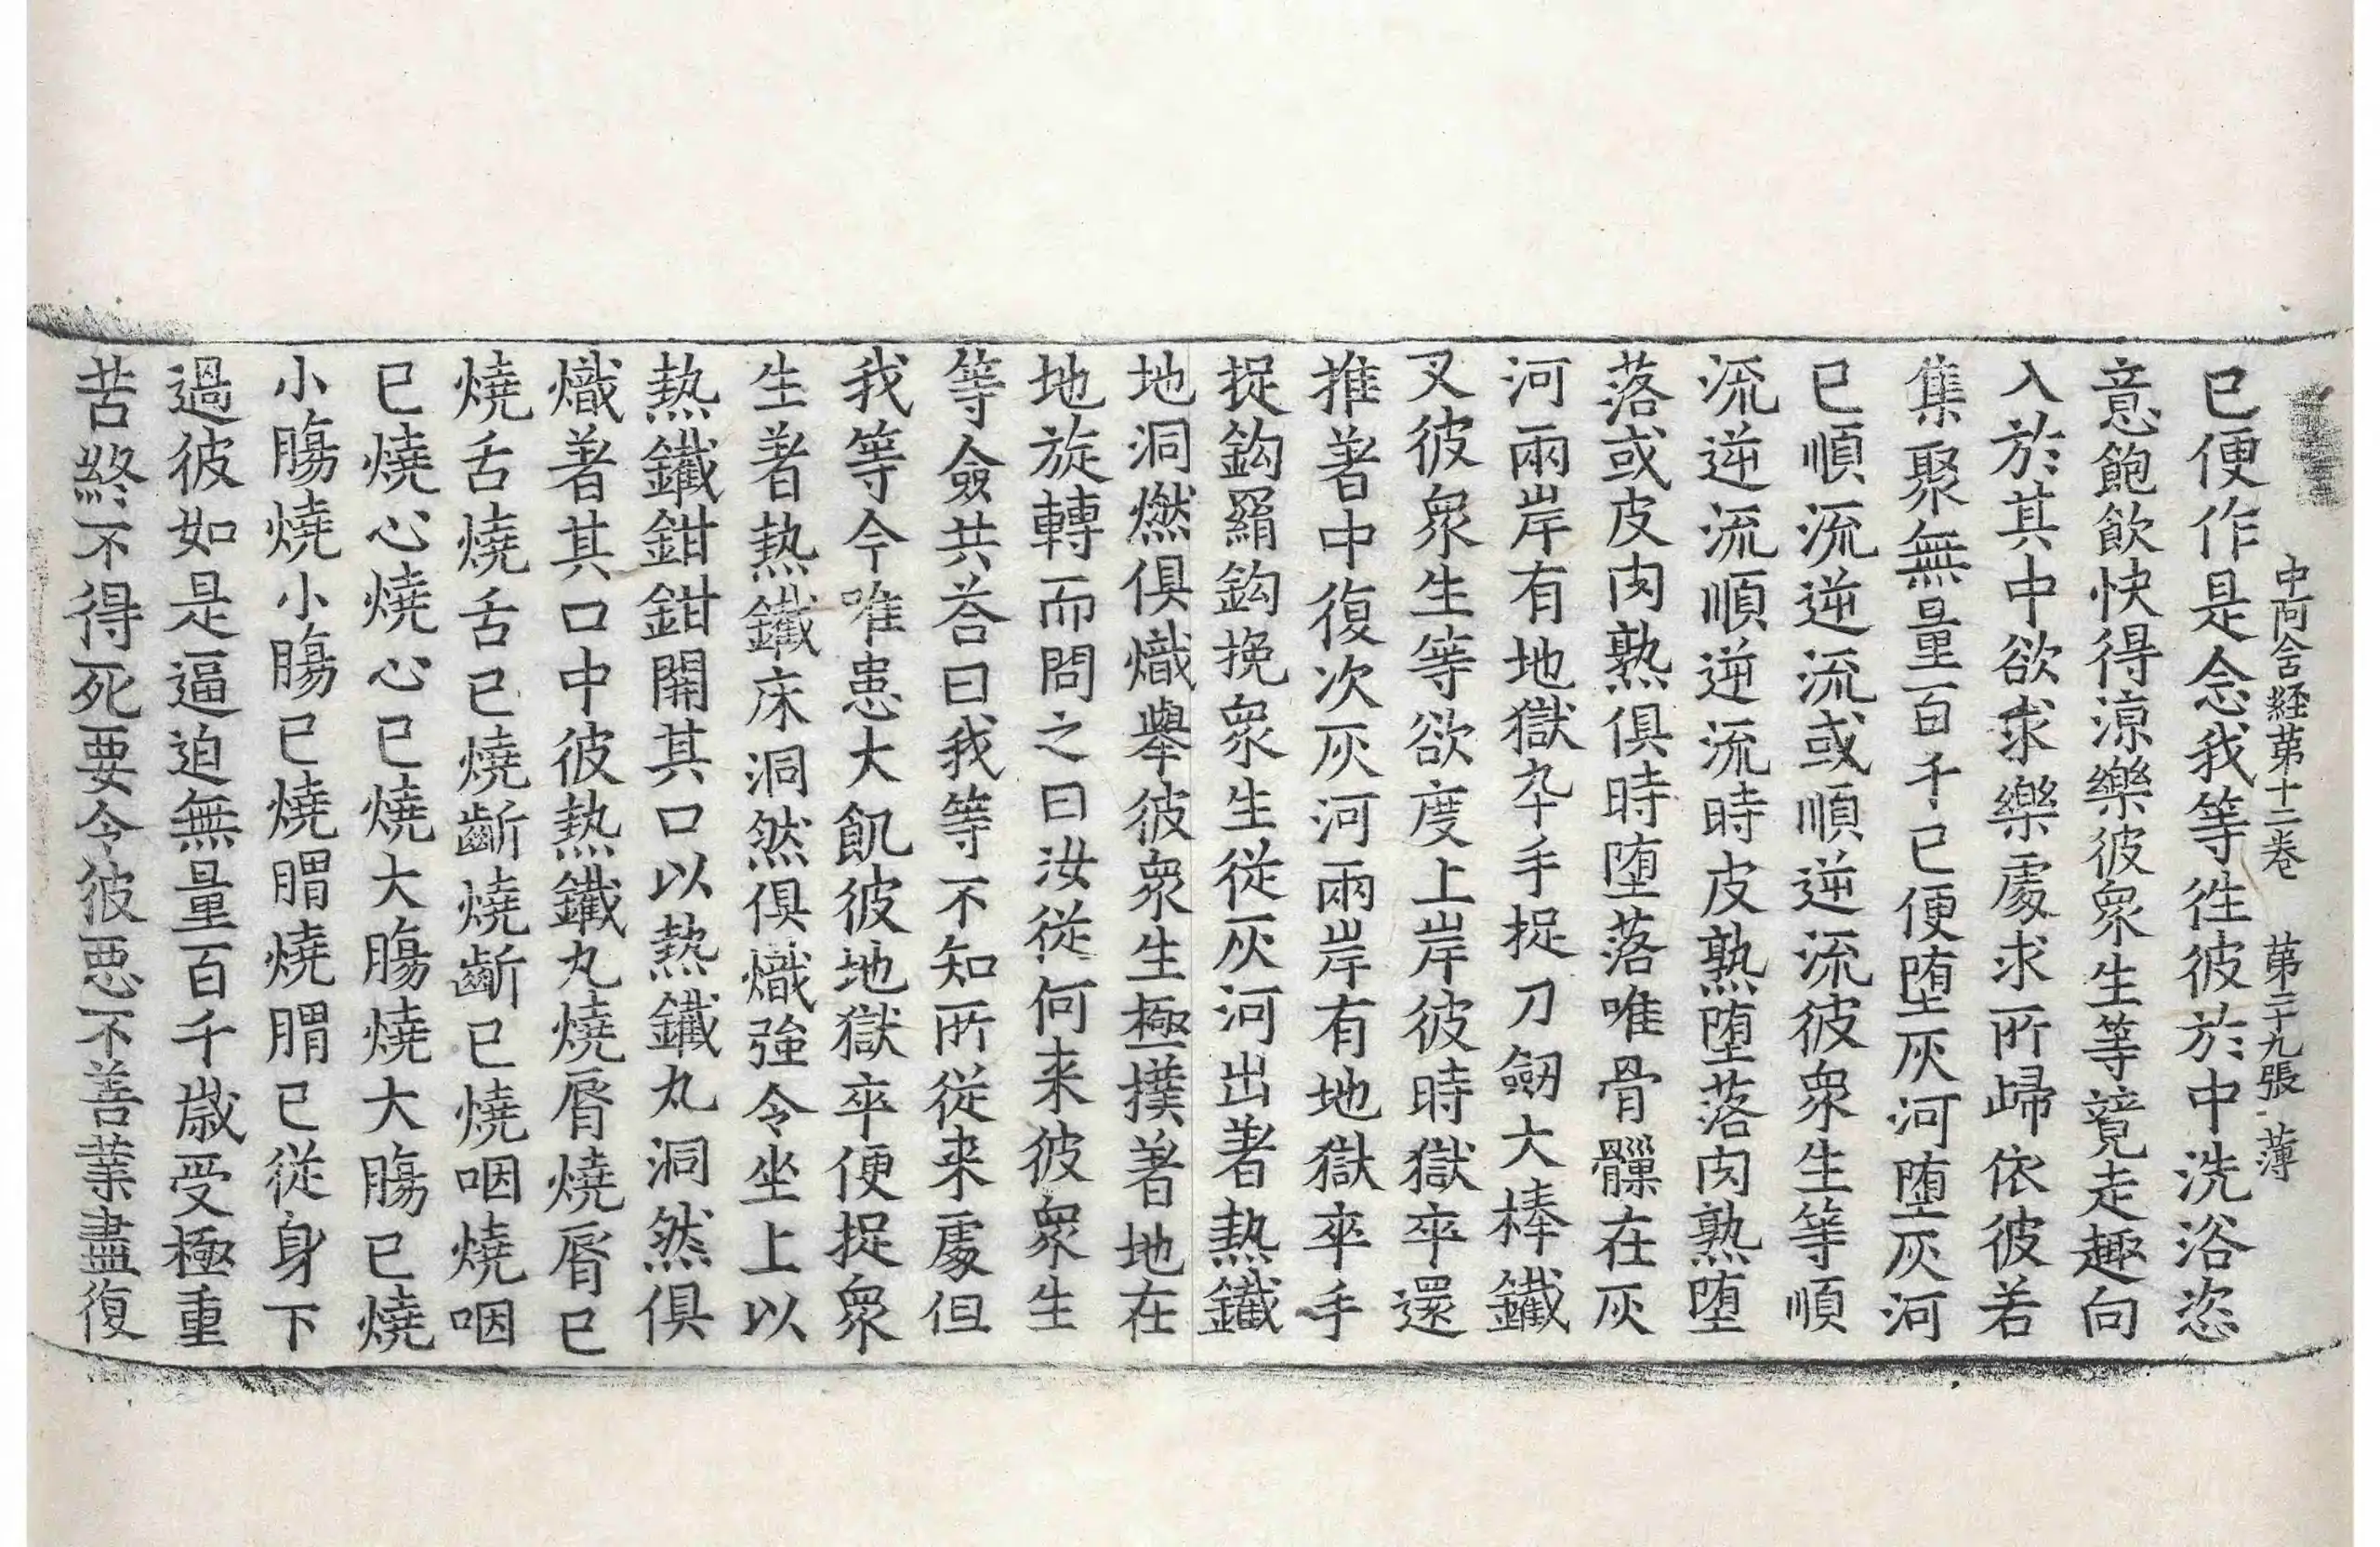 中阿含経苐十二卷 苐二十九張 薄
已便作是念我等徃彼於中洗浴恣
意飽飲快得涼樂彼衆生等競走趣向
入於其中欲求樂處求所歸依彼若
集聚無量百千已便堕灰河堕灰河
已順流逆流或順逆流彼衆生等順
流逆流順逆流時皮熟堕落肉熟堕
落或皮肉熟俱時堕落唯骨髏在灰
河兩岸有地獄卒手捉刀劔大棒鐵
叉彼衆生等欲度上岸彼時獄卒還
推著中復次灰河兩岸有地獄卒手
捉鈎羂鈎挽衆生從灰河出著熱鐵
地洞燃俱熾舉彼衆生極撲著地在
地旋轉而問之曰汝従何来彼衆生
等僉共荅曰我等不知所従来處但
我等今唯患大飢彼地獄卒便捉衆
生著熱鐵床洞然俱熾強令坐上以
熱鐵鉗鉗開其口以熱鐵丸洞然俱
熾著其口中彼熱鐵丸燒脣燒脣已
燒舌燒舌已燒齗燒齗已燒咽燒咽
已燒心燒心已燒大膓燒大膓已燒
小膓燒小膓已燒胃燒胃已従身下
過彼如是逼迫無量百千歳受極重
苦終不得死要令彼惡不善業盡復